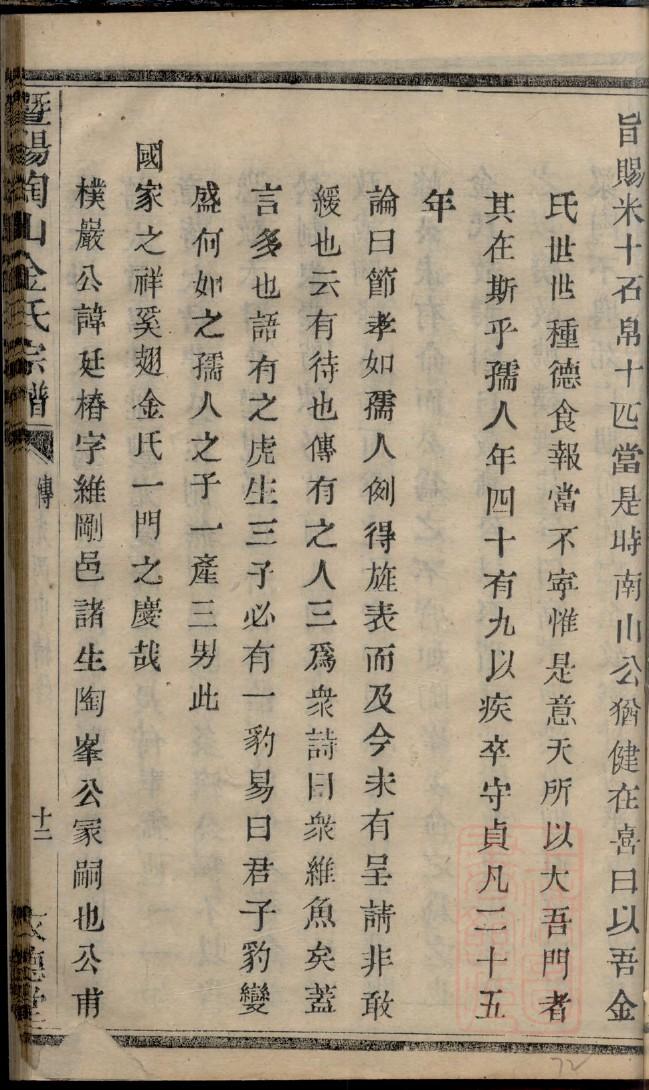 旨賜米十石帛十匹當是時南山公猶健在喜曰以吾金
氏世世種德食報當不寧惟是意天所以大吾門者
其在斯乎孺人年四十有九以疾卒守貞凡二十五
年
論曰節孝如孺人例得旌表而及今未有呈請非敢
緩也云有待也傳有之人三爲衆詩曰衆維魚矣蓋
言多也語有之虎生三子必有一豹易曰君子豹變
盛何如之孺人之子一產三男此
國家之祥奚翅金氏一門之慶哉
樸巖公諱廷椿字維剛邑諸生陶峯公冢嗣也公甫
暨陽陶山金氏宗譜
傳
十二
72